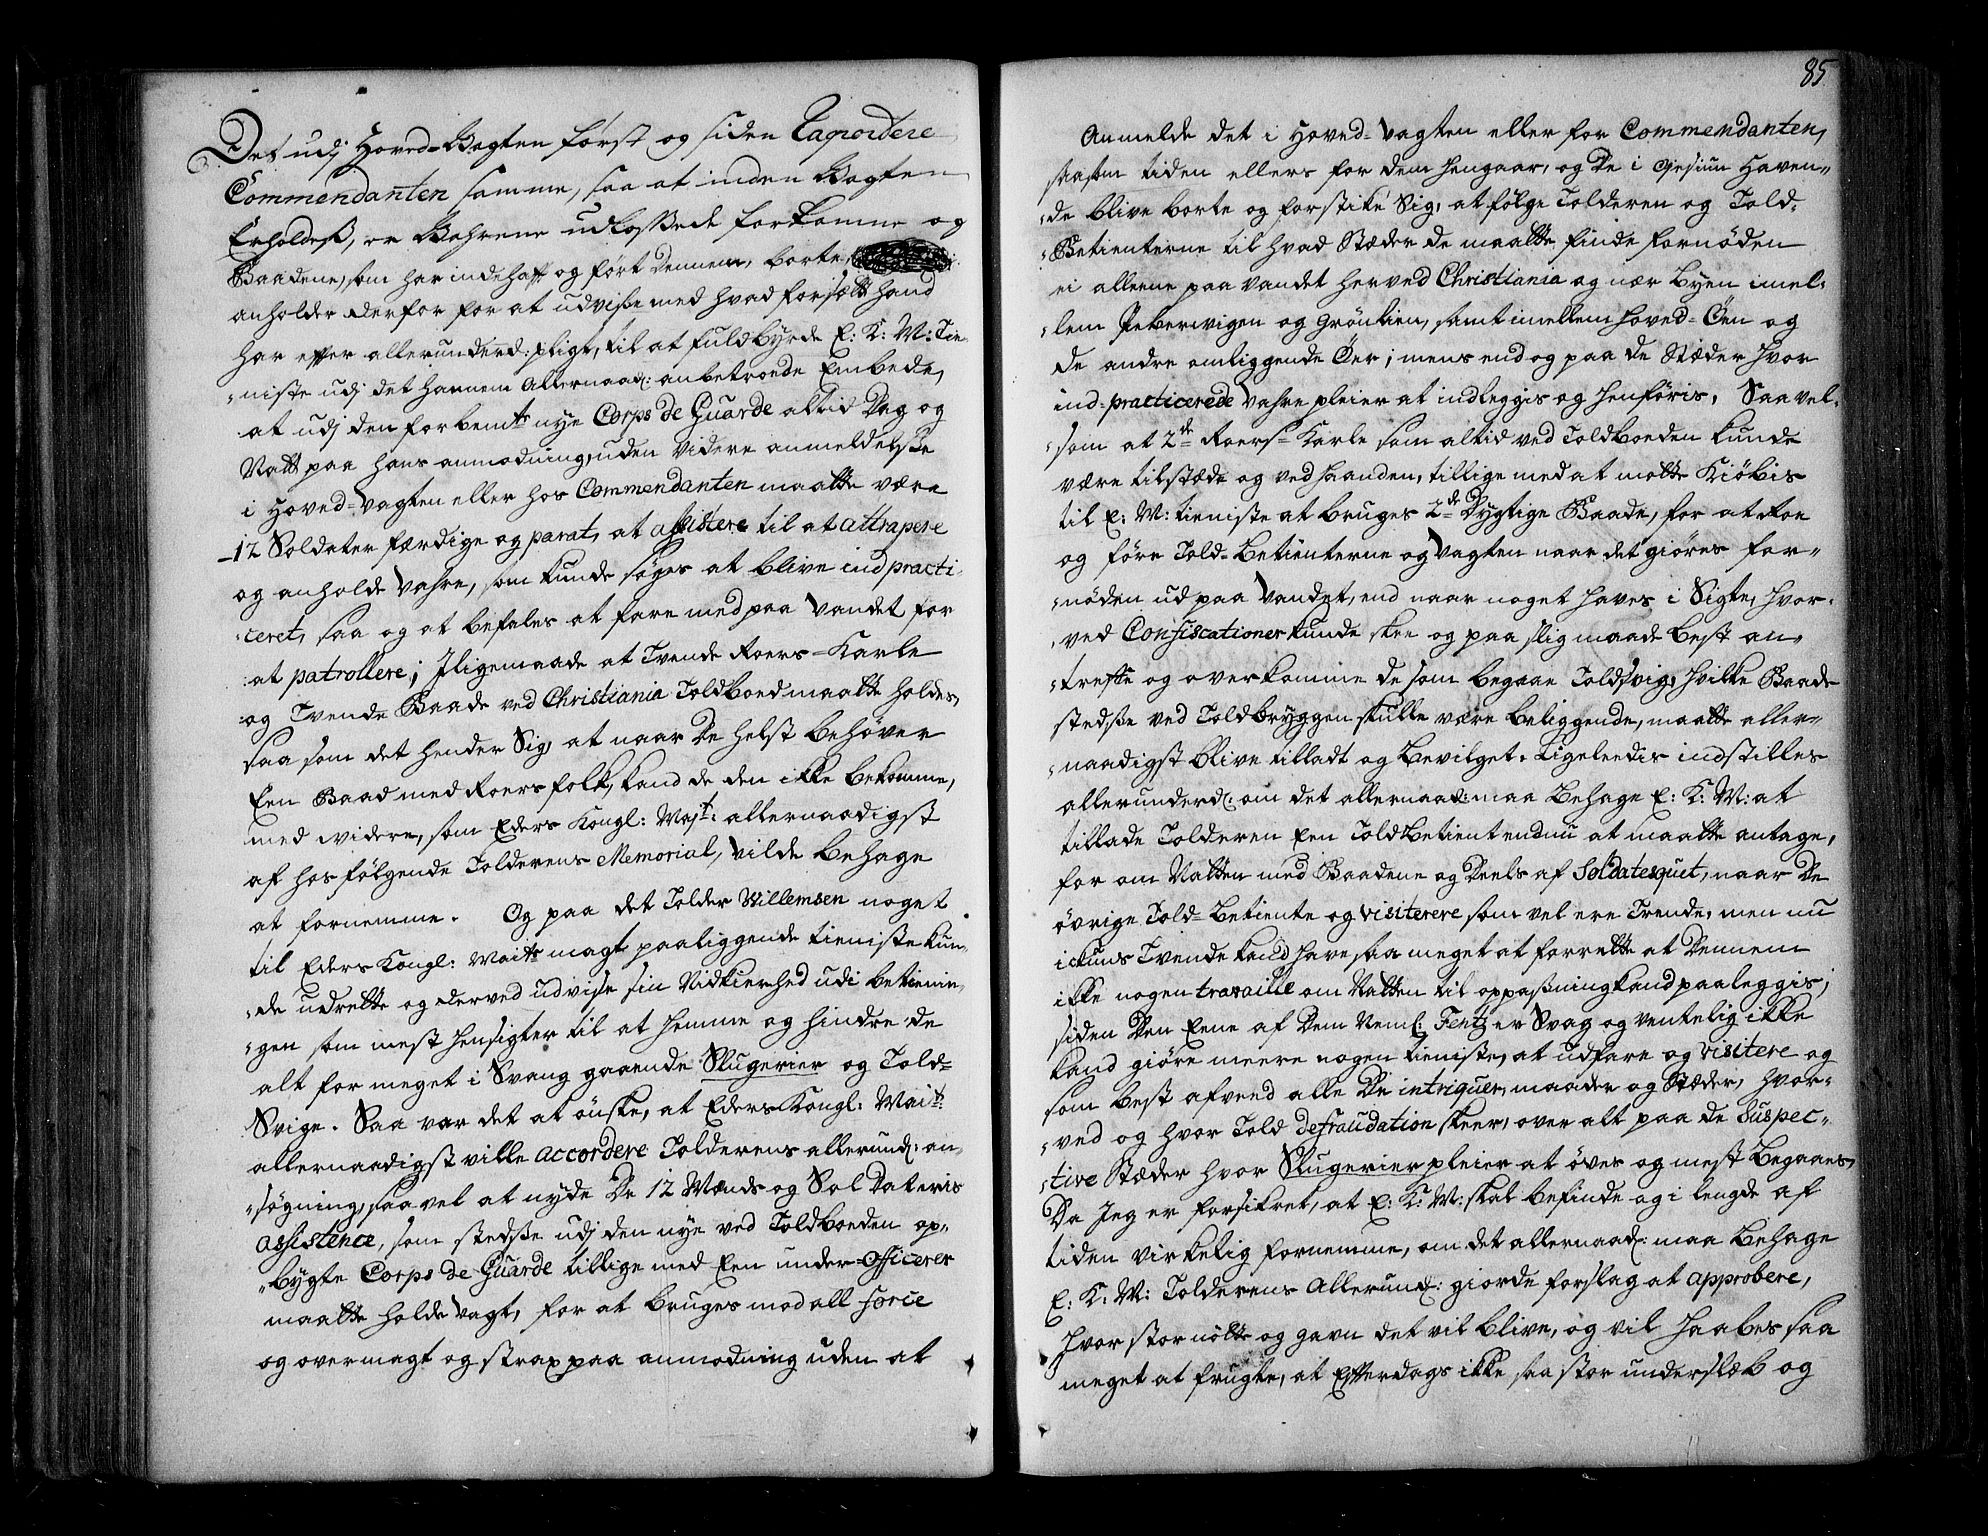 Det udj Hoved-Vagten først og siden Raportere
Commendanten samme, saa at inden Vagten
Erholdeß, er Vahrene udlossede forkomne og
Baadene, som har indehafft og ført dennem, borte
anholder derfor for at udviße med hvad forsætt hand
har effter allerunderd: pligt, til at fuldbyrde E: K: M: Tie-
niste udj det hannem Allernaad: anbetroede Embede,
at udj den forbemte nye Corps de Guarde altid Dag og
Natt paa hans anmodning, uden videre anmeldelße
i Hoved-Vagten eller hos Commendanten maatte være
12 Soldater færdige og parat, at assistere til at attrapere
og anholde Vahre, som kunde søges at blive ind practi-
ceret, saa og at befales at fare med paa Vandet for
at patrollere; Jligemaade at Tvende Roers-Karle
og Tvende Baade ved Christiania Toldboed maatte holdes,
saa som det hender Sig, at naar De helst behøver
Een Baad med Roers folk, kand de den ikke bekomme,
med videre, som Eders Kongl: Majt: allernaadigst
af hos følgende Tolderens Memorial, Vilde behage
at fornemme. Og paa det Tolder Willemsen noget
til Eders Kongl: Maits magt paaliggende tieniste kun-
de udrette og derved udvise sin Nidkierhed udi betienin-
gen som mest hensigter til at hemme og hindre de
alt for meget i Svang gaaende Slugerier og Told-
Svige. Saa var det at ønske, at Eders Kongl: Mait:
allernaadigst ville accordere Tolderens allerund: an-
søgning, saa vel at nyde De 12 Mænds og Soldateris
assistence, som stedße udj den nye ved Toldboeden op-
bygte Corps de Guarde tillige med Een under-Officerer
maatte holde Vagt, for at bruges med all force
og overmagt og strax paa anmodning uden at
85
Anmelde det i Hoved-Vagten eller for Commendanten,
saasom tiden ellers for dem hengaar, og De i Haven-
de blive borte og forstike Sig, at følge Tolderen og Told-
Betienterne til hvad Stæder de maatte finde fornøden
ei alleene paa Vandet her ved Christiania og nær Byen imel-
lem Peberwigen og Grønlien, samt imellem Hoved-Øen og
de andre omliggende Øer; mens end og paa de Stæder hvor
ind-practicerede Vahre pleier at indleggis og henføris. Saa vel
som at 2de Roers-Karle som altid ved Toldboeden kunde
være tilstæde og ved haanden, tillige med at motte Kiøbis
til E: M: tieniste at bruges 2de Dygtige Baade, for at Roe
og føre Told-Betienterne og Vagten naar det giøres for-
nøden ud paa Vandet, end naar noget haves i Sigte, hvor-
ved Confiscationer kunde skee og paa slig maade best an-
treffe og overkomme de som begaae Toldsvig, hvilke Baade
stedße ved Toldbryggen skulle være beliggende, maatte aller-
naadigst blive tilladt og bevilget. Ligeleedis indstilles
allerunderd: om det allernaad: maa behage E: K: M: at
tillade Tolderen Een Toldbetient endnu at maatte antage,
for om Natten med Baadene og Deels af Soldatesquet, naar De
øvrige Told-Betiente og visiterere som vel ere Trende, men nu
ickuns Tvende kand have saa meget at forrette at Dennem
ikke nogen travaille om Natten til oppaßning kand paaleggis;
siden Den Eene af Dem Neml: Fentz er Svag og ventelig ikke
kand giøre meere nogen tieniste, at udfare og visitere og
som best afvend alle De intriquer, maader og Stæder, hvor-
ved og hvor Told defraudation skeer, over alt paa de Suspec-
tive Stæder hvor Slugerier pleier at øves og mest begaaes,
Da Jeg er forsikret, at E: K: M: skal befinde og i lengde af
tiden virkelig fornemme, om det allernaad: maa behage
E: K: M: Tolderens Allerund: giorde forslag at approbere,
hvor stor nötte og gavn det vil blive, og vil haabes saa
meget at frugte, at Efterdags ikke saa stor underslæb og